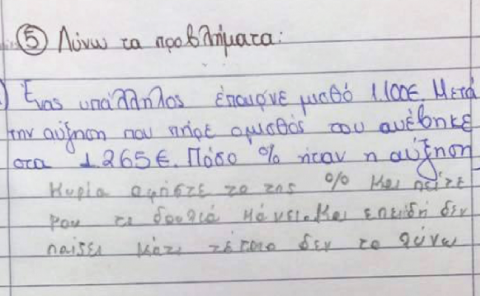 ⑤ Λύνω τα προβλήματα:
) Ένας υπάλληλος έπαιρνε μισθό 1.100€. Μετά
την αύξηση που πήρε ο μισθός του ανέβηκε
στα 1.265€. Πόσο % ήταν η αύξηση
Κυρία αφήστε το της % και πείτε
μου τι δουλειά κάνει. Και επειδή δεν
παίζει κάτι τέτοιο δεν το λύνω